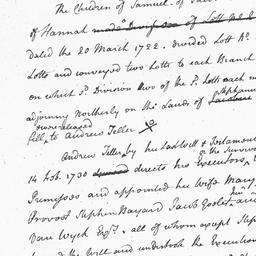 The Children of Samuel. of Jac
of Hannah made Division of Lott No 2
dated the 20 March 1722. divided Lott No.
Lotts and conveyed two Lotts to each Branch
on which sd. Division two of the sd. Lotts each m
adjoining Northerly on the Lands of Stephanus
fell to Andrew Teller
Andrew Teller by his Last Will & Testament
14 Feb. 1730 directs his Executors or the Survivor
Premisses and appointed his Wife Mary
Provost Stephen Bayard Jacob Goelet and
Van Wyck Esqrs. all of whom except Steph
the Will and undertook the Execution